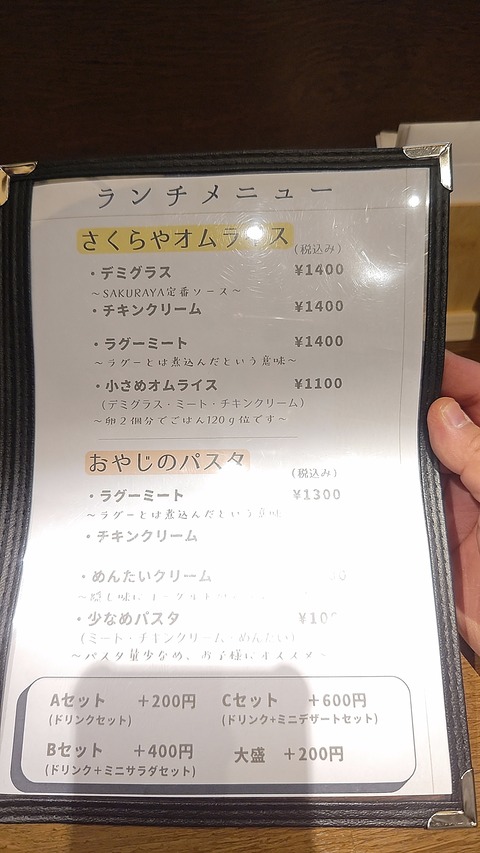 ランチメニュー
さくらやオムライス (税込み)
・デミグラス ¥1400
～SAKURAYA定番ソース～
・チキンクリーム ¥1400
・ラグーミート ¥1400
～ラグーとは煮込んだという意味～
・小さめオムライス ¥1100
(デミグラス・ミート・チキンクリーム)
～卵2個分でごはん120g位です～
おやじのパスタ (税込み)
・ラグーミート ¥1300
～ラグーとは煮込んだという意味
・チキンクリーム
・めんたいクリーム
・少なめパスタ
(ミート・チキンクリーム・めんたい)
～パスタ量少なめ、お子様にオススメ～
Aセット ＋200円 Cセット ＋600円
(ドリンクセット) (ドリンク+ミニデザートセット)
Bセット ＋400円 大盛 ＋200円
(ドリンク+ミニサラダセット)